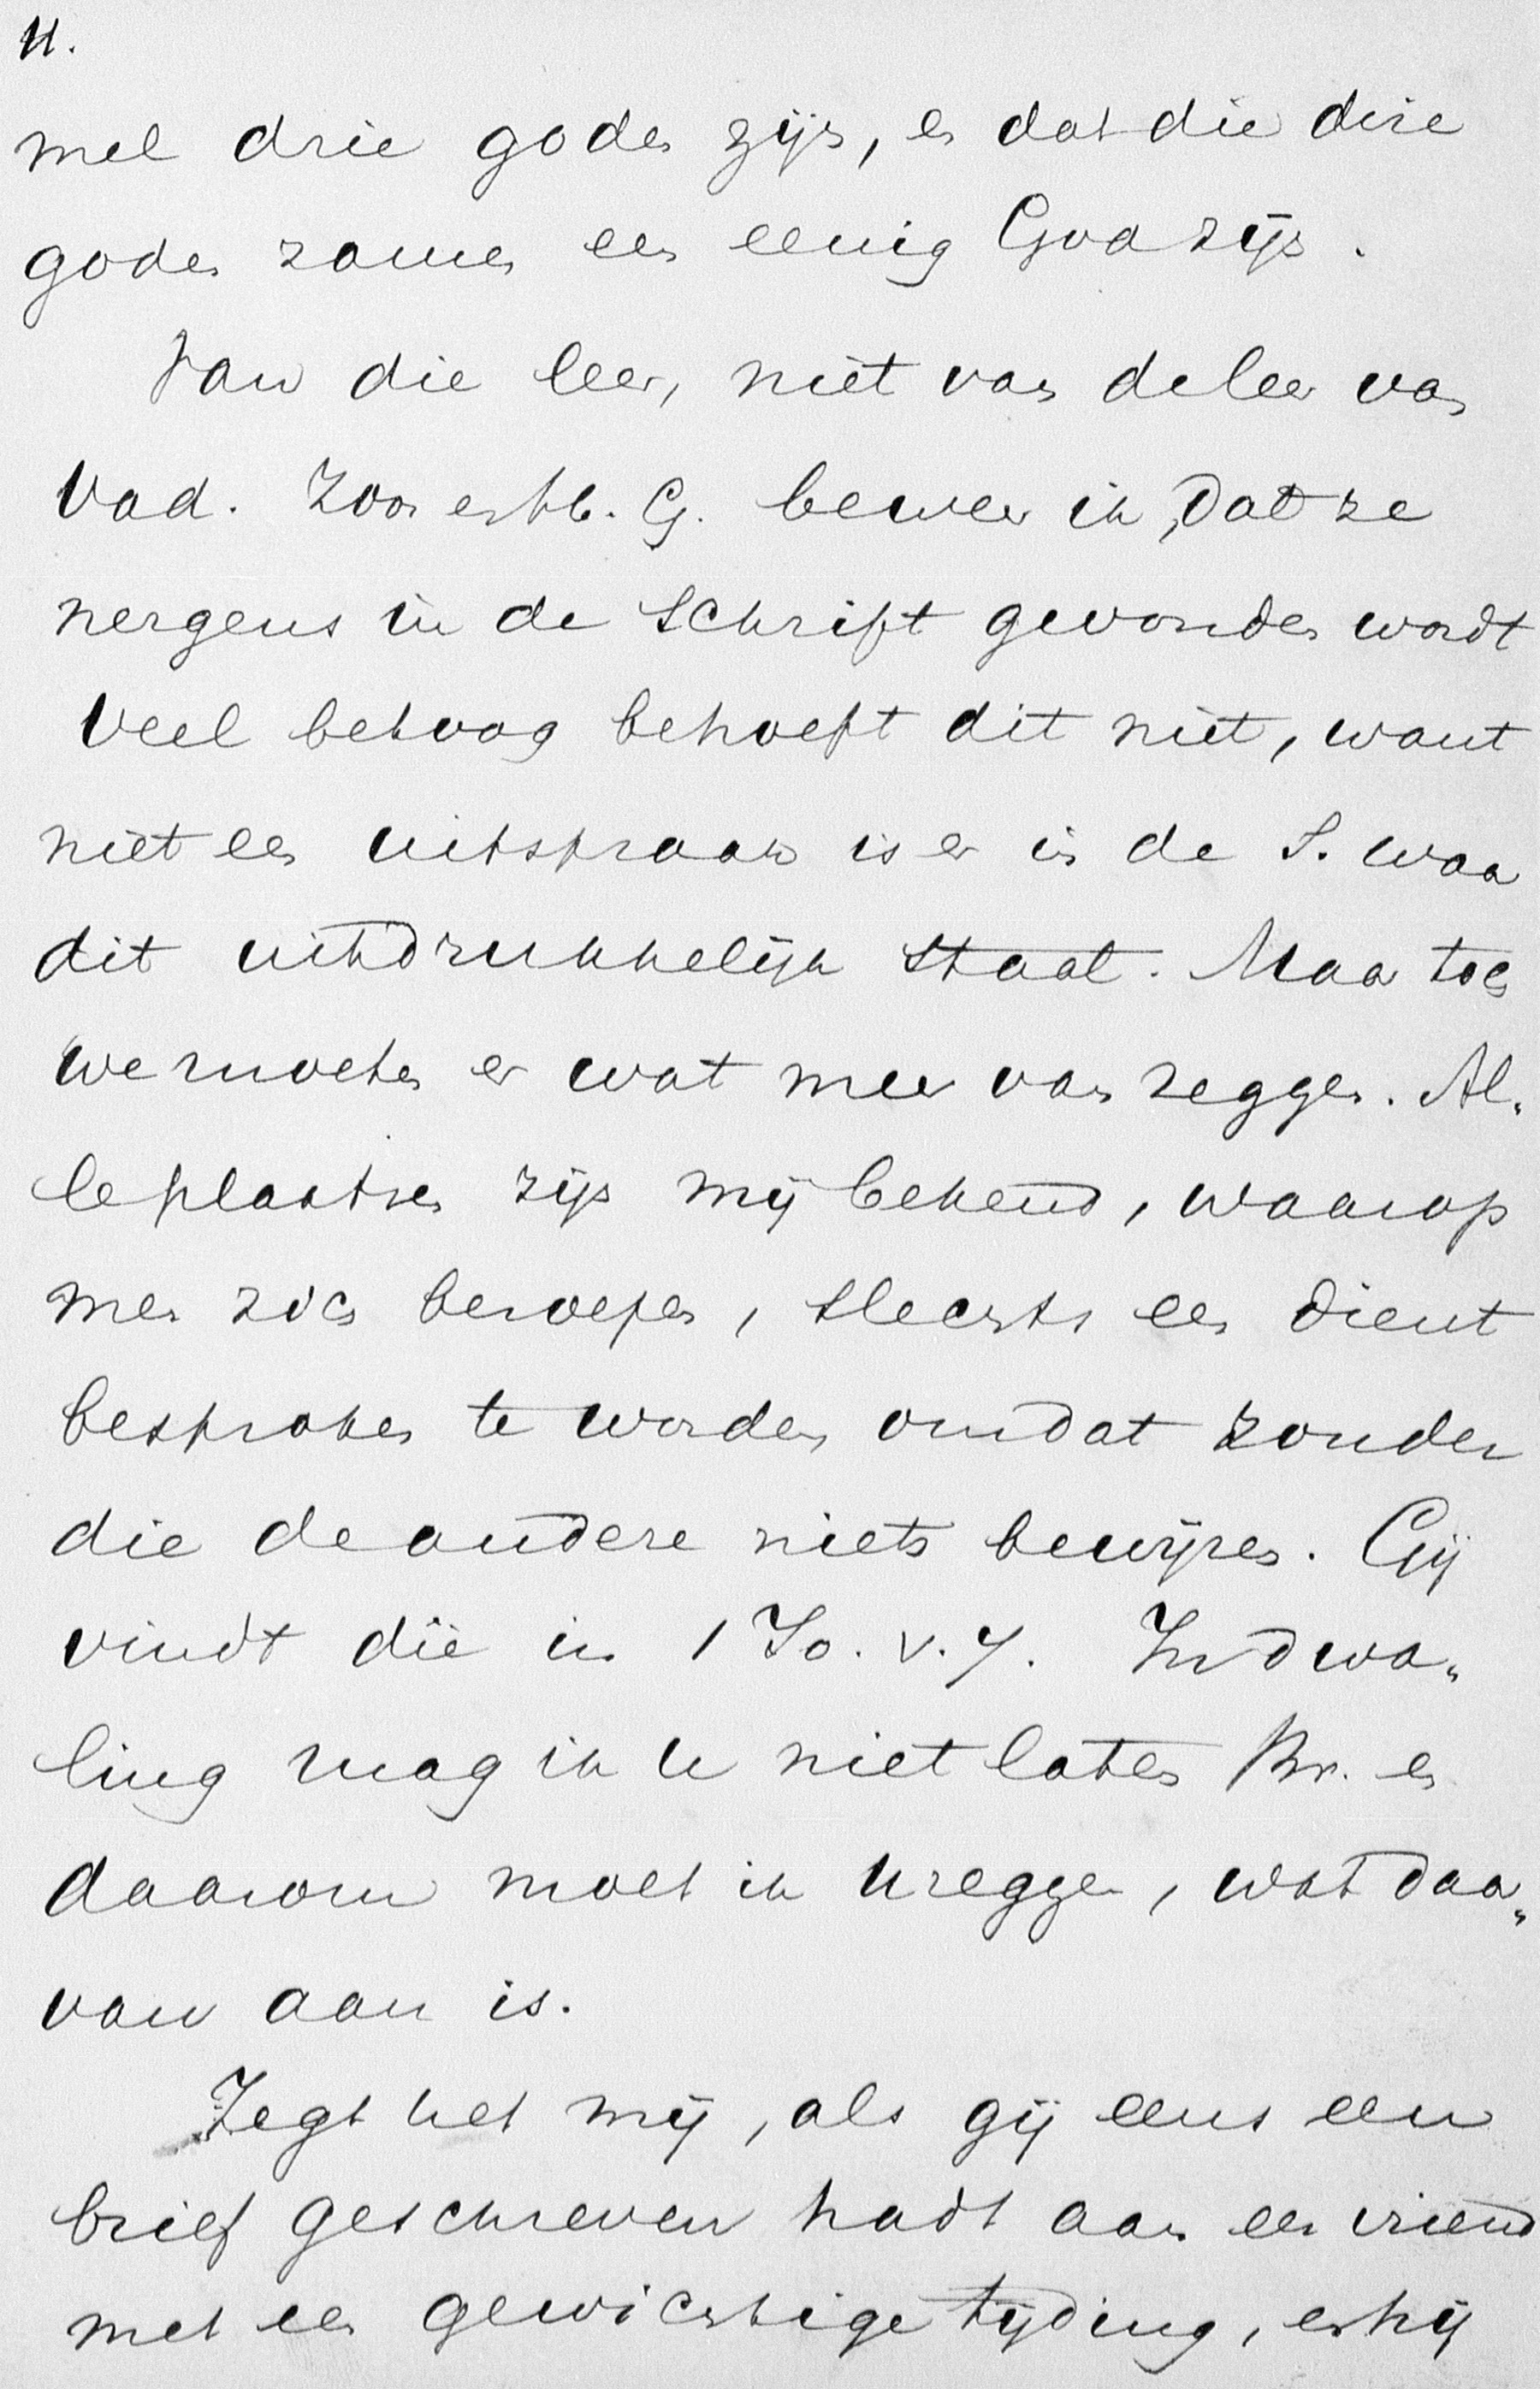 11.
mel drie goden zijn, en dat die drie
goden zamen een eenig God zijn.
Van die leer, niet van de leer van
Vad. Zoon en H. G. beweer ik, dat ze
nergens in de Schrift gevonden wordt
Veel betoog behoeft dit niet, want
niet een uitspraak is er in de S. waar
dit uitdrukkelijk staat. Maar toch
we moeten er wat meer van zeggen. Al„
le plaatsen zijn mij bekend, waarop
men zich beroepen, slechts een dient
besproken te worden omdat zonder
die de andere niets bewijzen. Gij
vindt die in 1 Jo. V. 7. In dwa„
ling mag ik U niet laten Br. en
daarom moet ik U zeggen, wat daar„
van aan is.
Zegt het mij, als gij eens een
brief geschreven hadt aan een vriend
met een gewichtige tijding, en hij